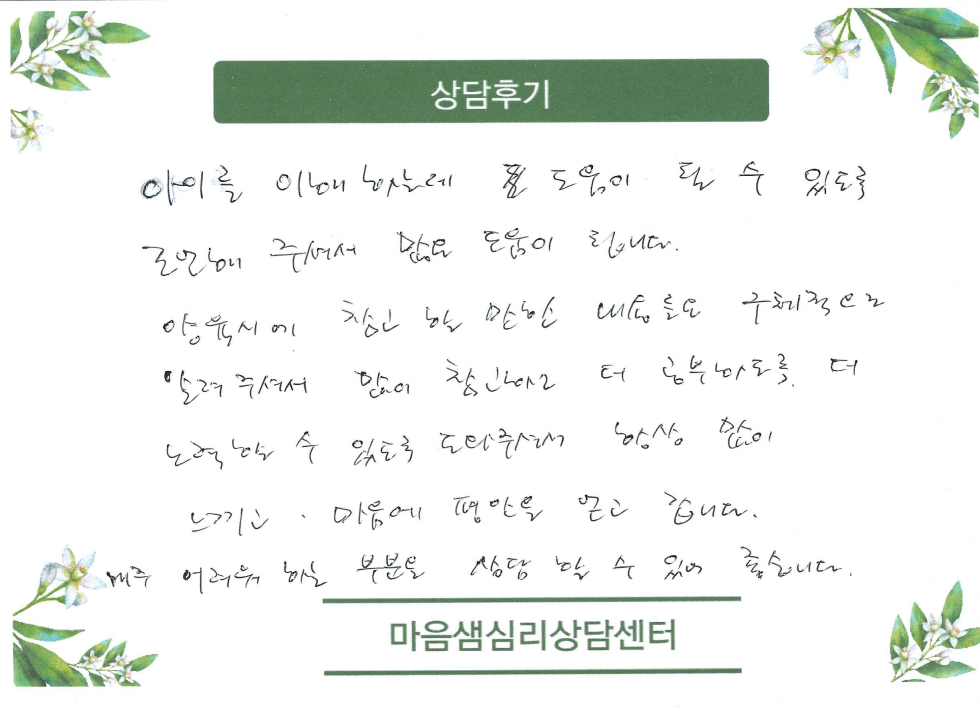 상담후기
아이를 이해하는데 큰 도움이 될 수 있도록
조언해 주셔서 많은 도움이 됩니다.
양육시에 참고 할 만한 내용들도 구체적으로
알려주셔서 많이 참고하고 더 공부하도록, 더
노력할 수 있도록 도와주셔서 항상 많이
느끼고. 마음에 평안을 얻고 갑니다.
매주 어려워 하는 부분을 상담 할 수 있어 좋습니다.
마음샘심리상담센터